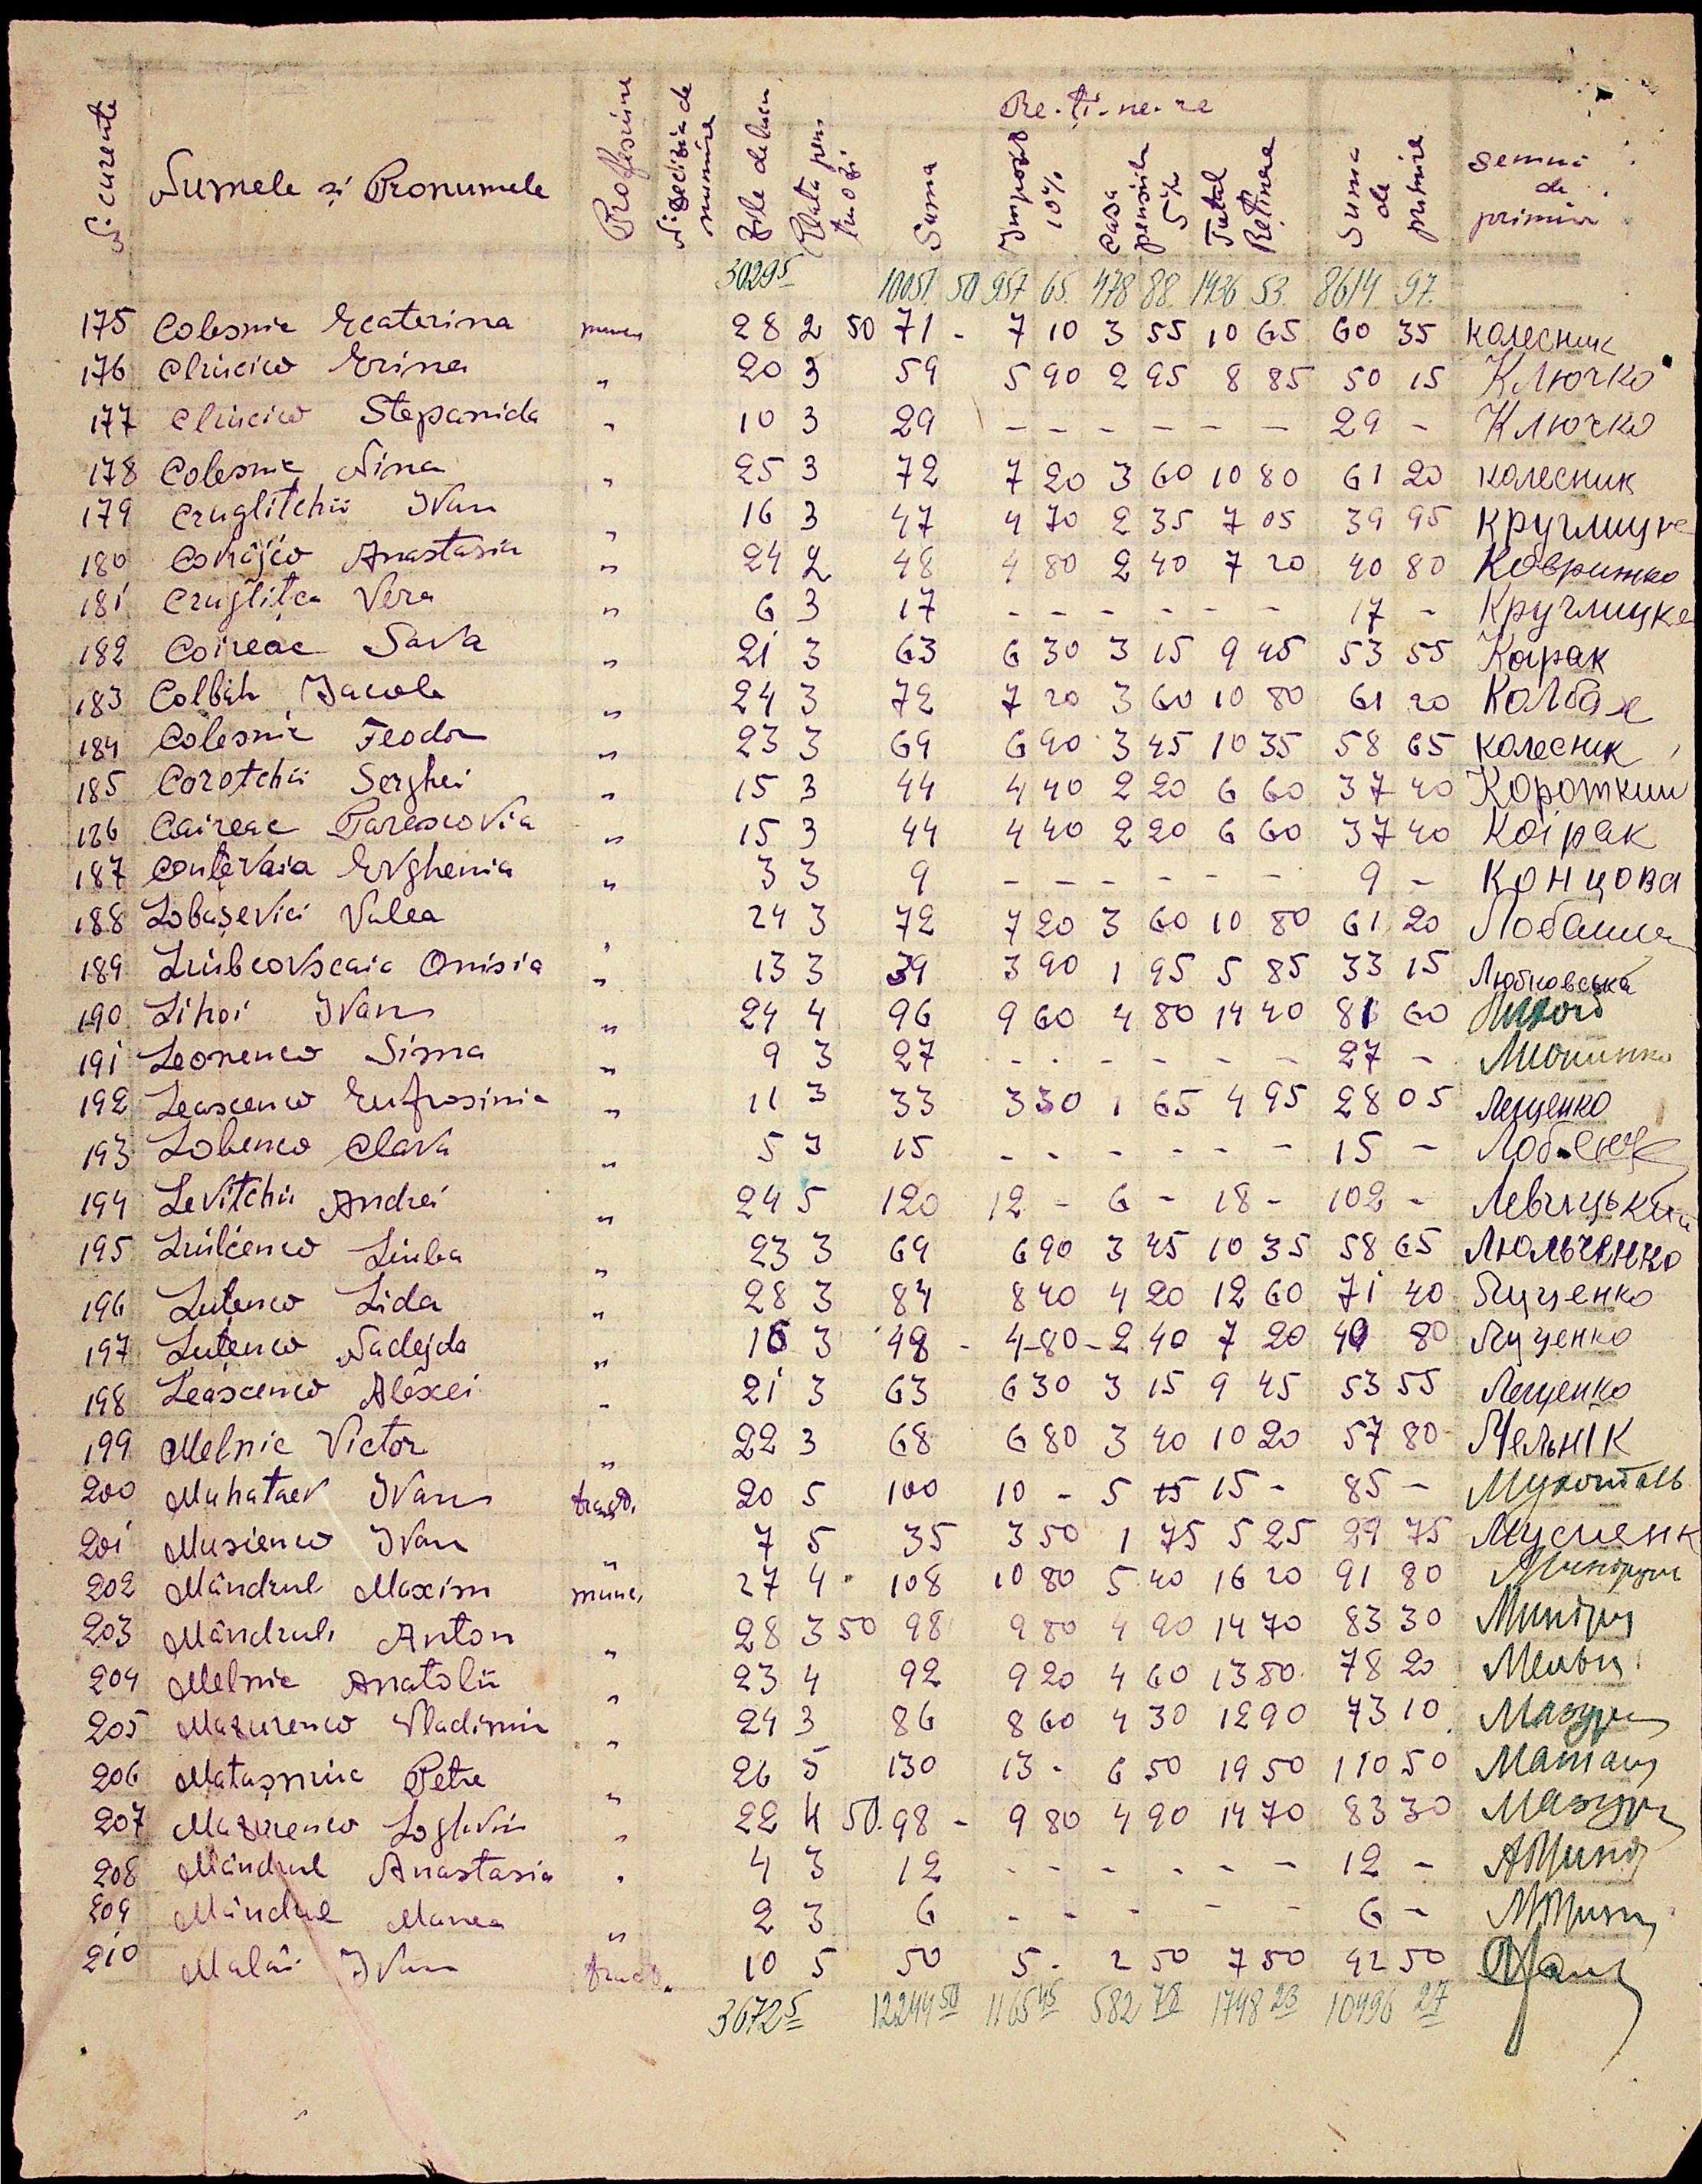 Re-ți-ne-re
Nr. curente Numele și Pronumele Profesiune Nr Decizia de numire Zile de lucru Plata pen tru o zi Suma Impozit 10% Casa pensiilor 5% Total Reținere Suma de primire Semnă de primire
3029⁵ 10051. 50 957 65. 478 88. 1436 53. 8614 97.
175 Colesnic Ecaterina munc 28 2 50 71 - 7 10 3 55 10 65 60 35 колесник
176 Cliucico Erina " 20 3 59 5 90 2 95 8 85 50 15 Ключко
177 Cliucico Stepanida " 10 3 29 - - - - - - 29 - Ключко
178 Colesnic Nina " 25 3 72 7 20 3 60 10 80 61 20 колесник
179 Cruglitchii Ivan " 16 3 47 4 70 2 35 7 05 39 95 круглицке
180 Anastasia " 24 2 48 4 80 2 40 7 20 40 80 Коврижко
181 Cruglițca Vera " 6 3 17 - - - - - - 17 - Круглицке
182 Coireac Sava " 21 3 63 6 30 3 15 9 45 53 55 Коірак
183 Colbah Iacob " 24 3 72 7 20 3 60 10 80 61 20 Колбах
184 Colesnic Feodor " 23 3 69 6 90 3 45 10 35 58 65 колесник
185 Corotchii Serghei " 15 3 44 4 40 2 20 6 60 37 40 Короткий
186 Caireac Parascovia " 15 3 44 4 40 2 20 6 60 37 40 Коірак
187 Conțevaia Evghenia " 3 3 9 - - - - - - 9 - Концова
188 Lobașevici Valea " 24 3 72 7 20 3 60 10 80 61 20 Лобаше
189 Liubcovscaia Onisia " 13 3 39 3 90 1 95 5 85 33 15 Любковська
190 Lihoi Ivan " 24 4 96 9 60 4 80 14 40 81 60
191 Leonenco Sima " 9 3 27 - - - - - - 27 -
192 Leascenco Eufrosinia " 11 3 33 3 30 1 65 4 95 28 05 Лещенко
193 Lobenco Clava " 5 3 15 - - - - - - 15 -
194 Levitchii Andrei " 24 5 120 12 - 6 - 18 - 102 - Левицький
195 Liulcenco Liuba " 23 3 69 6 90 3 45 10 35 58 65 Люльченко
196 Luțenco Lida " 28 3 84 8 40 4 20 12 60 71 40 Луценко
197 Luțenco Nadejda " 16 3 48 - 4 - 80 - 2 40 7 20 40 80 Луценко
198 Leascenco Alexei " 21 3 63 6 30 3 15 9 45 53 55 Лещенко
199 Melnic Victor " 22 3 68 6 80 3 40 10 20 57 80 Мельнік
200 Muhataev Ivan tract. 20 5 100 10 - 5 15 - 85 -
201 Musienco Ivan " 7 5 35 3 50 1 75 5 25 29 75 Мусиенк
202 Mândrul Maxim munc. 27 4 108 10 80 5 40 16 20 91 80
203 Mândrul Anton " 28 3 50 98 9 80 4 90 14 70 83 30
204 Melnic Anatolii " 23 4 92 9 20 4 60 13 80 78 20
205 Mazurenco Vladimir " 24 3 86 8 60 4 30 12 90 73 10 Мазур
206 Petre " 26 5 130 13 - 6 50 19 50 110 50 Маташ
207 Mazurenco " 22 4 50 98 - 9 80 4 90 14 70 83 30 Мазур
208 Mândrul Anastasia " 4 3 12 - - - - - - 12 -
209 Mândrul Manea " 2 3 6 - - - - - - 6 -
210 Malâi Ivan tract. 10 5 50 5 - 2 50 7 50 42 50
3672⁵ 12244 50 1165 45 582 78 1748 23 10496 27